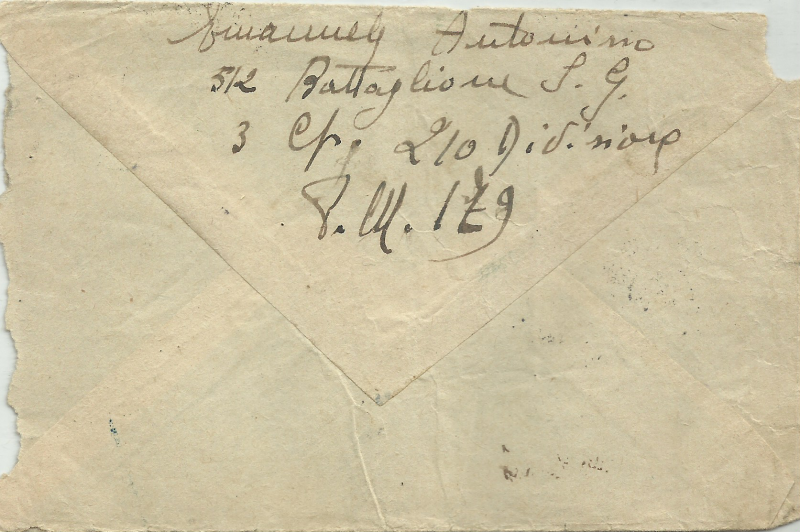 Emanuely Antonino
512 Battaglione S. G.
3 Cp. 210 Divisione
P. M. 179